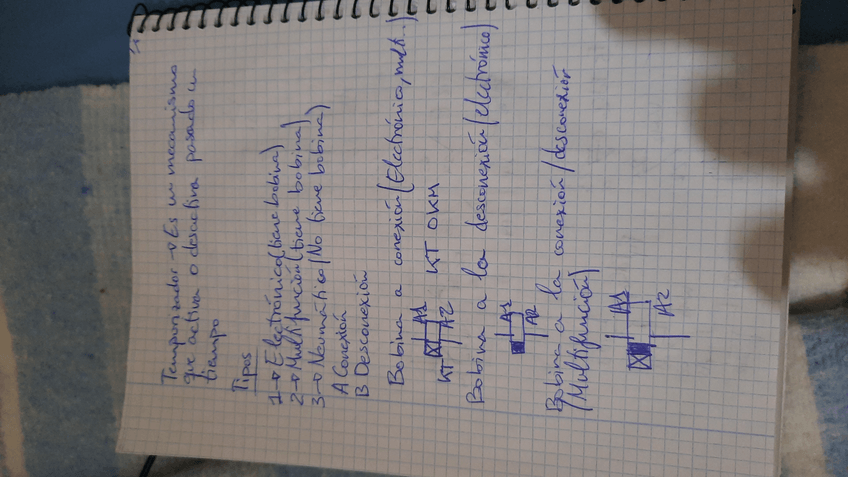 Temporizador → Es un mecanismo
que activa o desactiva pasado un
tiempo
Tipos
1→ Electrónico (tiene bobina)
2→ Multifunción (tiene bobina)
3→ Neumático (No tiene bobina)
A Conexión
B Desconexión
Bobina a conexión (Electrónico, mult..)
KT A1 A2 KT O KM
Bobina a la desconexión (electrónico)
A1
A2
Bobina a la conexión/desconexión
(Multifunción)
A1
A2